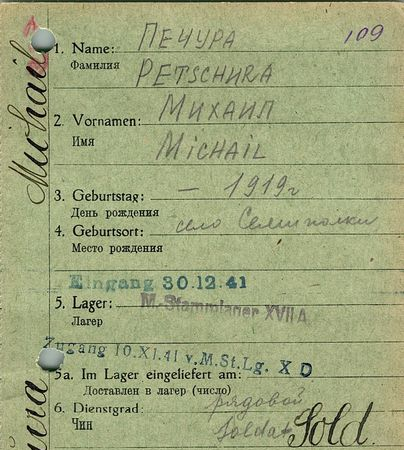 109
1. Name: ПЕЧУРА
Фамилия PETSCHURA
2. Vornamen: МИХАИЛ
Имя MICHAIL
Michail
3. Geburtstag: — 1919г
День рождения
4. Geburtsort: село Семиполки
Место рождения
Eingang 30.12.41
5. Lager: M.-Stammlager XVII A
Лагерь
Zugang 10.XI.41 v.M.St.Lg. X D
5a. Im Lager eingeliefert am:
Доставлен в лагерь (число)
6. Dienstgrad: рядовой
Чин Soldat Sold.